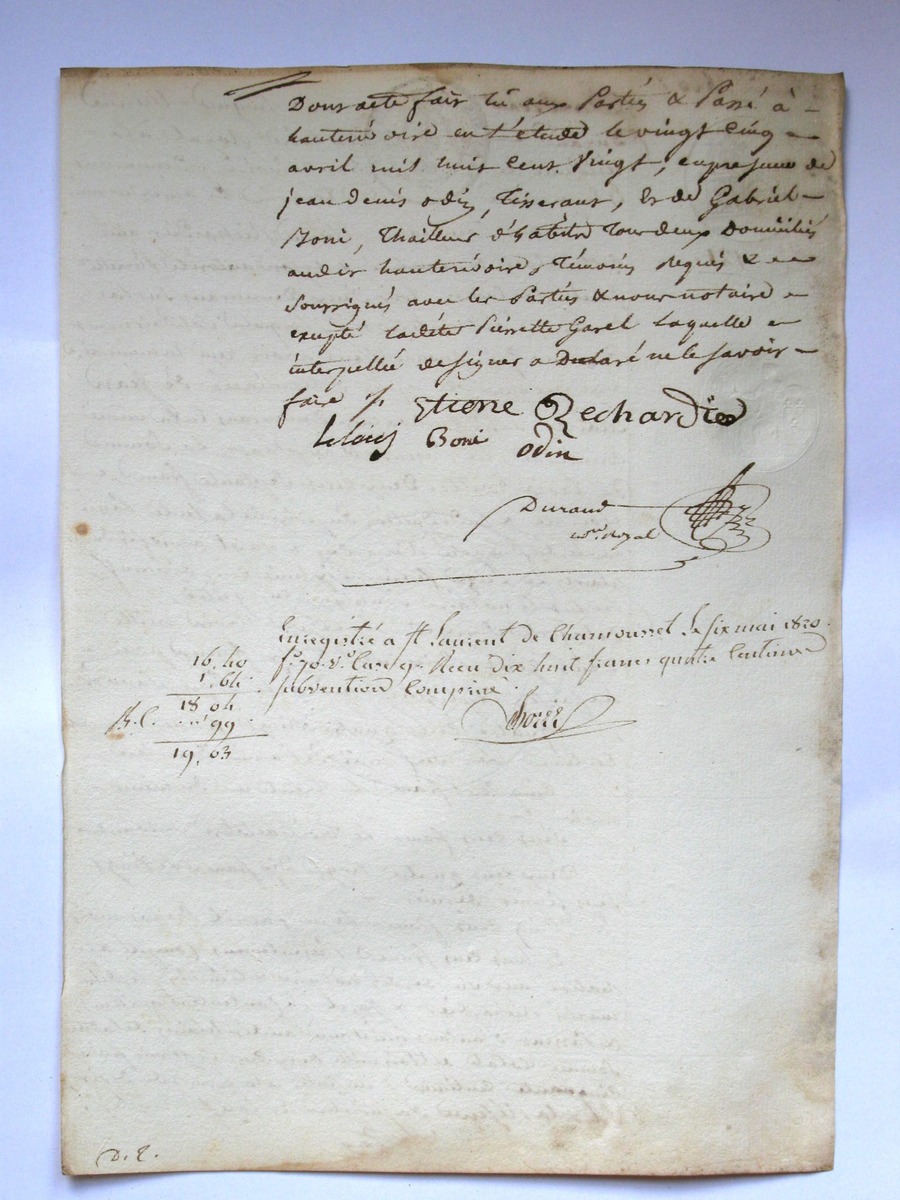 Dont acte fait lu aux Parties & Passé à
hauterivoire en l'étude le vingt cinq
avril mil huit cent vingt, en presence de
jean denis odin, Tisserant, & de Gabriel
Boni, Thailleur d'habits tous deux Domiciliés
audit hauterivoire, Témoins requis &
soussignés avec les Parties & nous notaire
excepté ladite Pierrette Garel laquelle
interpellée de signer a Déclaré ne le savoir
faire /. Etiene Rechardie
Boni odin
Durand
Royal
Enregistré a St Laurent de Chamousset le six mai 1820.
fo 70. vo Case 9. Recu dix huit francs quatre Centimes
subvention Comprise.
16, 40
1. 64
18 04
99
19, 03
D. E.